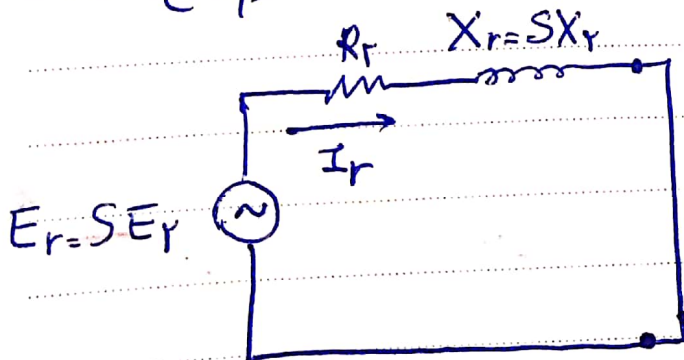 Rr
Xr=SX۲
Ir
~
Er=SE۲